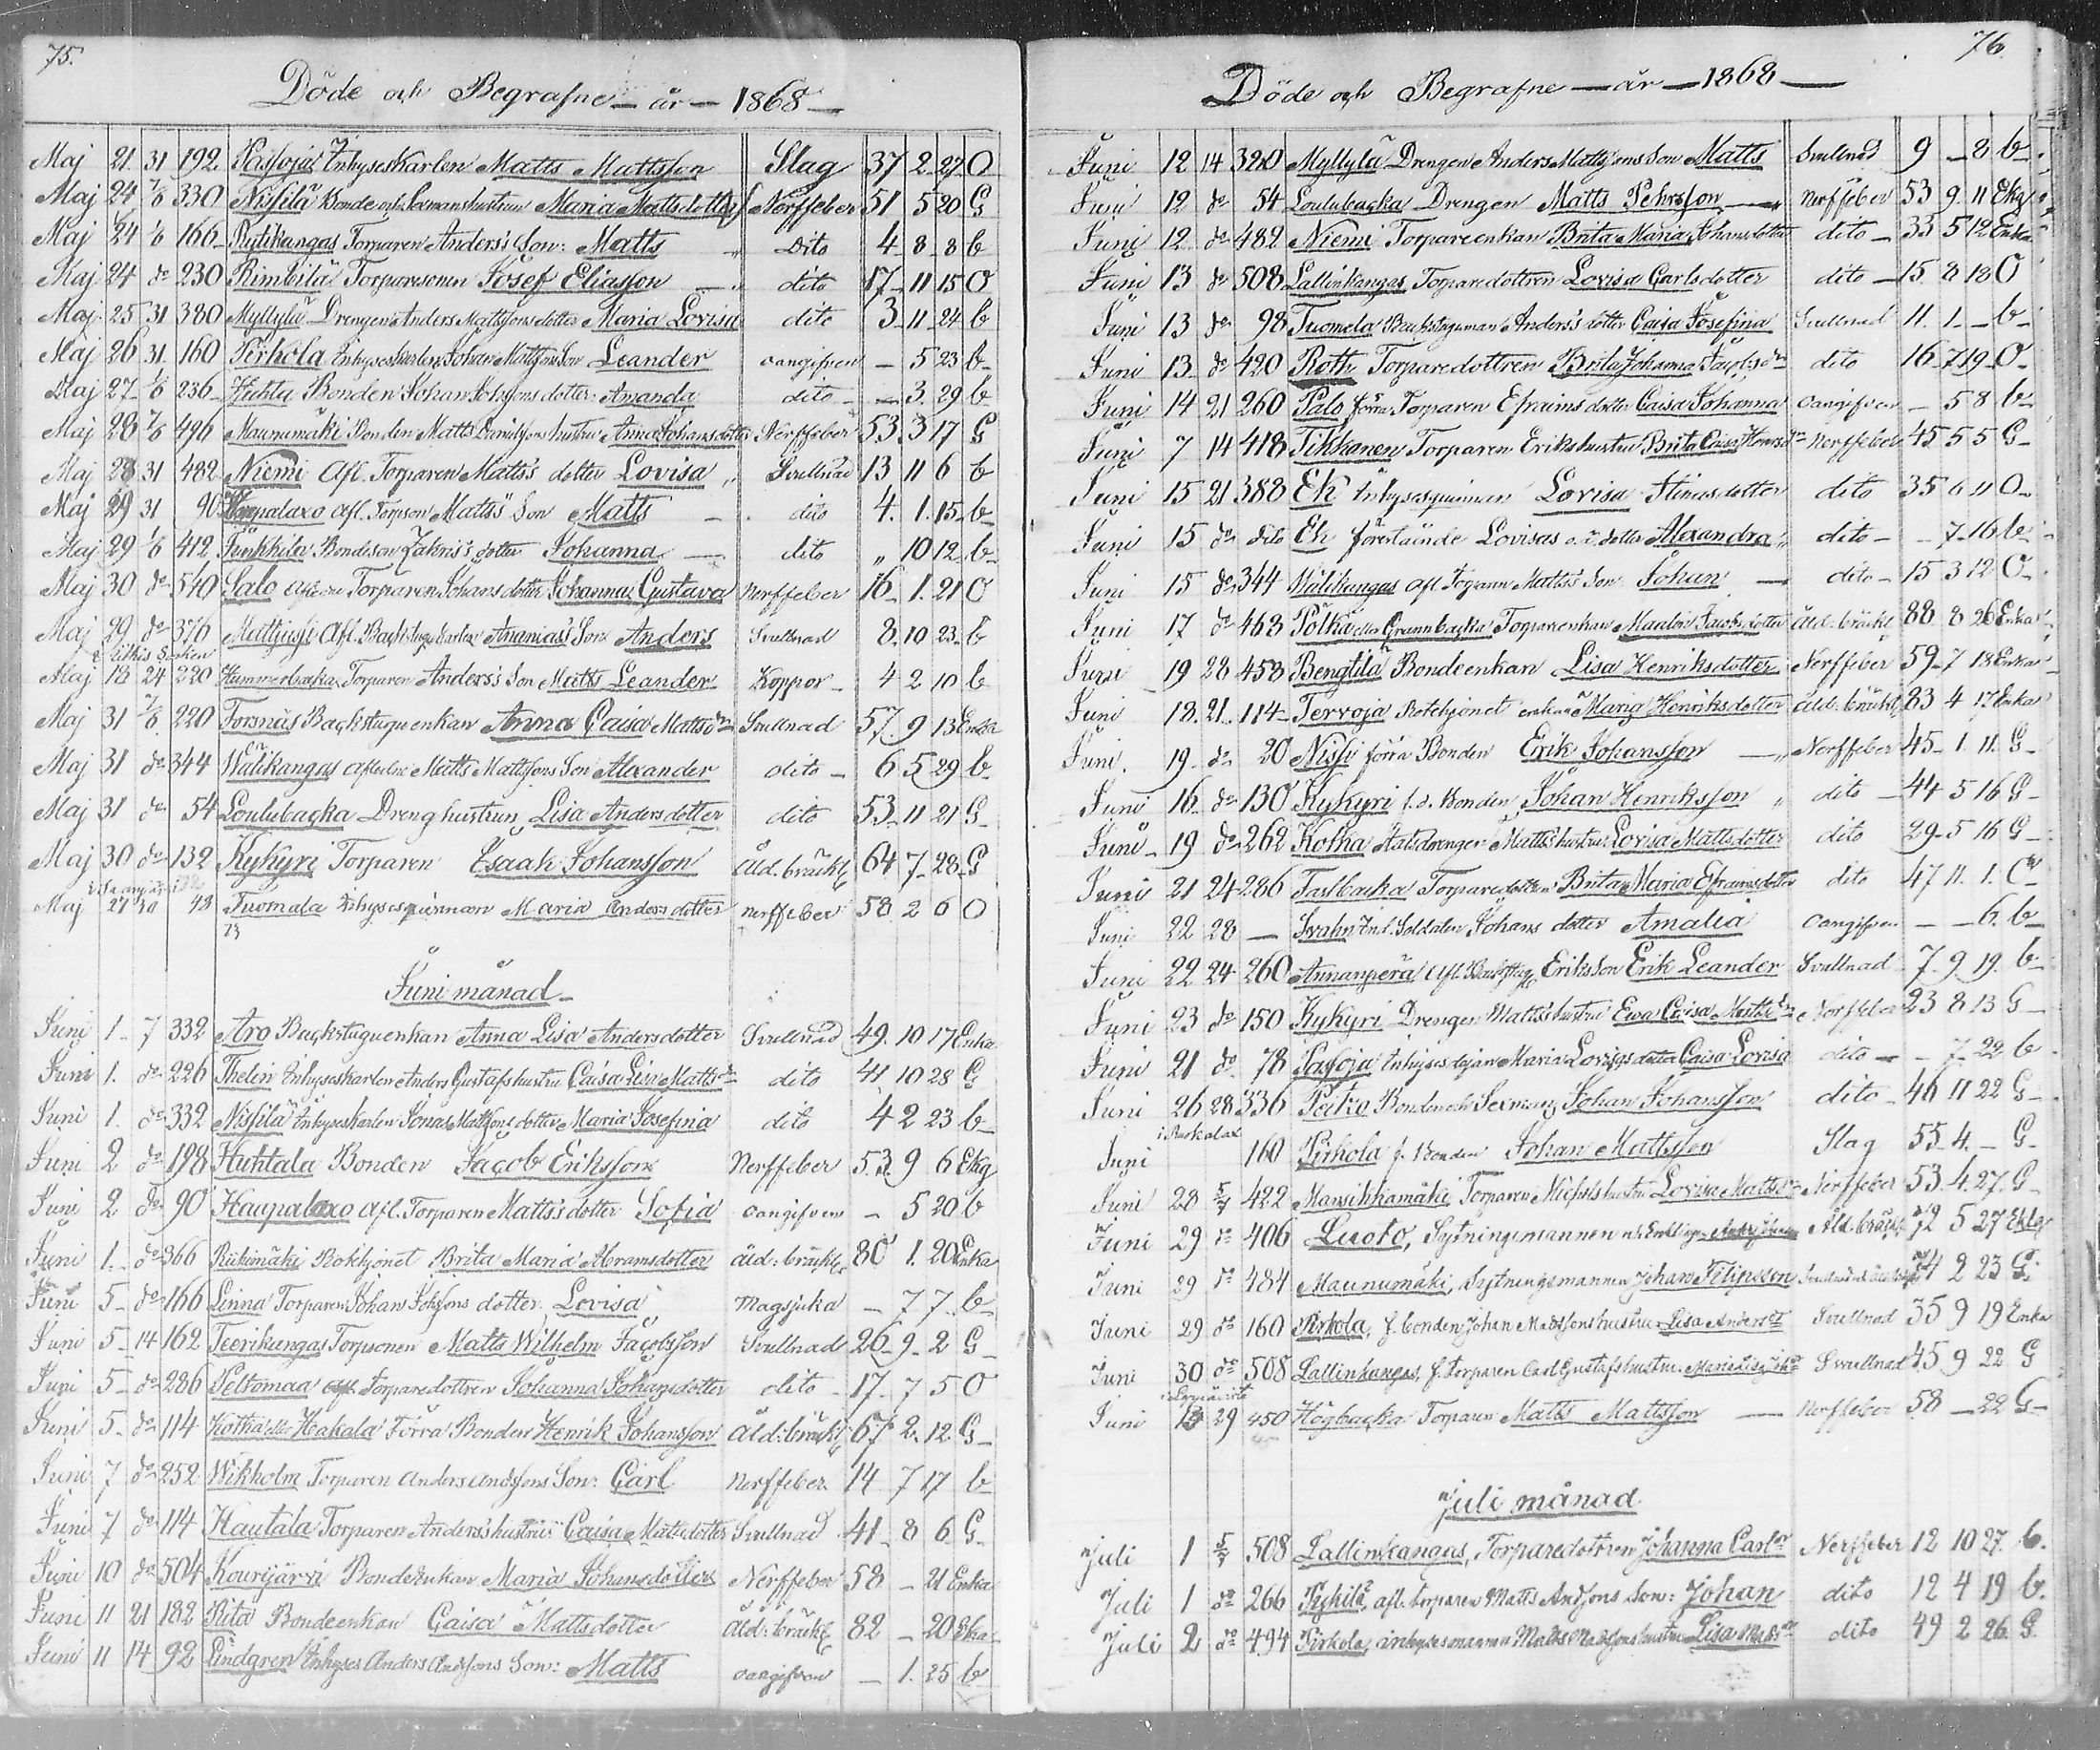 75.
Döde och Begrafne — år — 1868 —
Maj 21. 31 192. Passoja Inhyseskarlen Matts Mattsson Slag 37 2 27 O
Maj 24 7/6 330 Nissilä Bonde och Sexmanshustrun Maria Mattsdotter Nerffeber 51 5 20 G
Maj 24 1/6 166 Rytikangas Torparen Anders's Son: Matts Dito 4 8 8 b
Maj 24 do 230 Rimbilä Torparesonen Josef Eliasson dito 17 11 15 O
Maj 25 31 380 Myllylä Drengen Anders Mattssons dotter Maria Lovisa dito 3 11 24 b
Maj 26 31. 160 Pirkola Inhyseskarlen Johan Mattssons Son Leander oangifven — 5 23 b
Maj 27 1/6 236 Huhta Bonden Johan Johssons dotter: Amanda dito — 3. 29 b
Maj 28 7/6 496 Maunumäki Bonden Matts Danielssons hustru Anna Johansdotter Nerffeber 53. 3 17 G
Maj 28 31 482 Niemi Afl. Torparen Matts's dotter Lovisa Svullnad 13 11 6 b
Maj 29 31 90 Haapalaxo afl. Torpson Matts's Son Matts dito 4. 1. 15 b
Maj 29 1/6 412 Junkkila Bondeson Zakris's dotter Johanna dito „ 10 12 b
Maj 30 do 540 Salo aflidne Torparen Johans dotter Johanna Gustava Nerffeber 16 1. 21 O
Maj 29 do 376 Mattjussi Afl. Backstugukarlen Ananias's Son Anders Svullnad 8. 10 23 b
Maj 18 24 220 Hummerbacka Torparen Anders's Son Matts Leander Koppor 4 2 10 b
Maj 31 7/6 220 Forsnäs Backstuguenkan Anna Caisa Mattsdr Svullnad 57. 9 13 Enka
Maj 31 do 344 Wälikangas aflidne Matts Mattssons Son Alexander dito 6 5 29 b
Maj 31 do 54 Loulubacka Drenghustrun Lisa Andersdotter dito 53 11 21 G
Maj 30 do 132 Kykyri Torparen Esaak Johansson åld. bräckl. 64 7 28 G
Maj 27 30 48 Tuomala Inhysesqvinnan Maria Andersdotter nerffeber 58 2 6 O
73
Juni månad
Juni 1. 7 332 Aro Backstuguenkan Anna Lisa Andersdotter Svullnad 49. 10 17 Enka
Juni 1. do 226 Thelin Inhyseskarlen Anders Gustafs hustru Caisa Lisa Mattsdr dito 41 10 28 G
Juni 1. do 332 Nissilä Inhyseskarlen Jonas Mattssons dotter Maria Josefina dito 4 2 23 b
Juni 2 do 198 Huhtala Bonden Jacob Eriksson Nerffeber 53 9 6 Ekg
Juni 2 do 90 Haapalaxo Afl. Torparen Matts's dotter Sofia oangifven — 5 20 b
Juni 1. do 366 Riihimäki Rotehjonet Brita Maria Abramsdotter åld: bräckl. 80 1. 20 Enka
Juni 5 do 166 Linna Torparen Johans Johssons dotter Lovisa Magsjuka — 7 7 b
Juni 5 14 162 Teerikangas Torpsonen Matts Wilhelm Jacobsson Svullnad 26 9 2 G
Juni 5 do 286 Peltomaa afl. Torparedottren Johanna Johansdotter dito 17. 7 5 O
Juni 5 do 114 Kotka eller Hakala Förra Bonden Henrik Johansson åld: bräckl. 67 2. 12 G
Juni 7 do 252 Wikholm Torparen Anders Andssons Son: Carl Nerffeber 14 7 17 b
Juni 7 do 114 Hautala Torparen Anders's hustru Caisa Mattsdotter Svullnad 41 8 6 G
Juni 10 do 504 Kourijärvi Bondeenkan Maria Johansdotter Nerffeber 58 — 21 Enka
Juni 11 21 182 Rita Bondeenkan Caisa Mattsdotter åld: bräckl. 82 — 20 Eka
Juni 11 14 92 Lindgren Inhyses Anders Andssons Son: Matts oangifven — 1. 25 b
76.
Döde och Begrafne — år — 1868 —
Juni 12 14 380 Myllylä Drengen Anders Mattssons Son Matts Svullnad 9 — 8 b
Juni 12 do 54 Loulubacka Drengen Matts Pehrsson Nerffeber 53 9 11 Ekg
Juni 12 do 482 Niemi Torpareenkan Brita Maria Johansdotter dito 33 5 12 Enka
Juni 13 do 508 Lallinkangas Torparedottren Lovisa Carlsdotter dito 15. 8 18 O
Juni 13 do 98 Tuomela Backstuguman Anders's dotter Caisa Josefina Svullnad 11. 1. — b
Juni 13 do 420 Roth Torparedottren Brita Johanna Jacobsdr dito 16 7 19 O
Juni 14 21 260 Palo förra Torparen Efraims dotter Caisa Johanna oangifven — 5 8 b
Juni 7 14 418 Tikkanen Torparen Eriks hustru Brita Caisa Nerffeber 45 5 5 G
Juni 15 21 388 Ek Inhysesqvinnan Lovisa Stinasdotter dito 35 6 11 O
Juni 15 do dito Ek förestående Lovisas o.ä. dotter Alexandra dito — 7 16 b
Juni 15 do 344 Wälikangas afl Torparen Matts's Son Johan dito 15 3 12 O
Juni 17 do 468 Pölkä eller Grannbacka Torpareenkan Maalin Jacobsdotter åld. bräckl 88 8 26 Enka
Juni 19 28 458 Bengtila Bondeenkan Lisa Henriksdotter Nerffeber 59 7 18 Enka
Juni 18. 21. 114 Tervoja Rotehjonet enkan Maria Henriksdotter åld. bräckl 83 4 17 Enka
Juni. 19. do 20 Nissi förra Bonden Erik Johansson Nerffeber 45 1. 11. G
Juni 16 do 130 Kykyri f.d. Bonden Johan Henriksson dito 44 5 16 G
Juni 19 do 262 Kotka Statsdrengen Matts's hustru Lovisa Mattsdotter dito 29 5 16 G
Juni 21 24 286 Fastbacka Torparedottren Brita Maria Efraimsdotter dito 47 11. 1.
Juni 22 28 — Svahn Ind. Soldaten Johans dotter Amalia oangifven — — 6. b
Juni 22 24 260 Annanperä Afl. Backstug Eriks Son Erik Leander Svullnad 7. 9 19. b
Juni 23 do 150 Kykyri Drengen Matts's hustru Ewa Caisa Mattsdr Nerffeber 23 8 13 G
Juni 21 do 78 Passoja Inhyses pigan Maria Lovisas dotter Caisa Lovisa dito — 7. 22 b
Juni 26 28 336 Peitzo Bonden och Sexman Johan Johansson dito 46 11 22 G
Juni 160 Pirkola f. Bonden Johan Mattsson Slag 55 4. — G
Juni 28 5/7 422 Mansikkamäki Torparen Michels hustru Lovisa Mattsdr Nerffeber 53. 4. 27. G
Juni 29 do 406 Luoto, Sytningsmannen o. Enklingen Åld. bräckl 72 5 27 Eklg
Juni 29 do 484 Maunumäki, Sytningsmannen Johan Filipsson 74 2 23 G
Juni 29 do 160 Pirkola, f. bonden Johan Mattssons hustru Lisa Andersdr Svullnad 35 9 19 Enka
Juni 30 do 508 Lallinkangas, f. torparen Carl Gustafs hustru Maria Lisa Svullnad 45 9 22 G
Juni 29 450 Högbacka Torparen Matts Mattsson Nerffeber 58 — 22 G
Juli månad
Juli 1 5/7 508 Lallinkangas, Torparedottren Johanna Carlsdr Nerffeber 12 10 27. b.
Juli 1 do 266 Pyhilä, afl. torparen Matts Andssons Son: Johan dito 12 4 19 b.
Juli 2 do 494 Pirkola, inhysesmannen Matts Mattssons hustru Lisa Mattsdr dito 49 2 26. G.